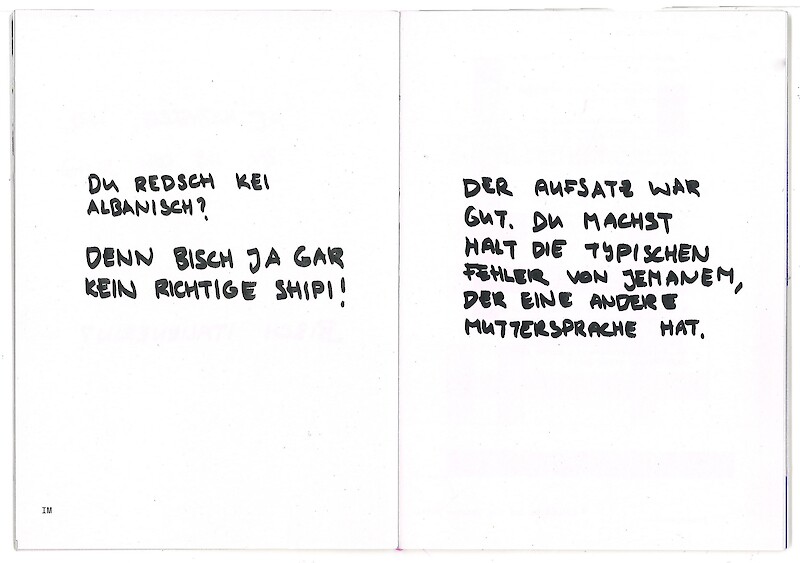 DU REDSCH KEI
ALBANISCH?
DENN BISCH JA GAR
KEIN RICHTIGE SHIPI!
IM
DER AUFSATZ WAR
GUT. DU MACHST
HALT DIE TYPISCHEN
FEHLER VON JEMANEM,
DER EINE ANDERE
MUTTERSPRACHE HAT.